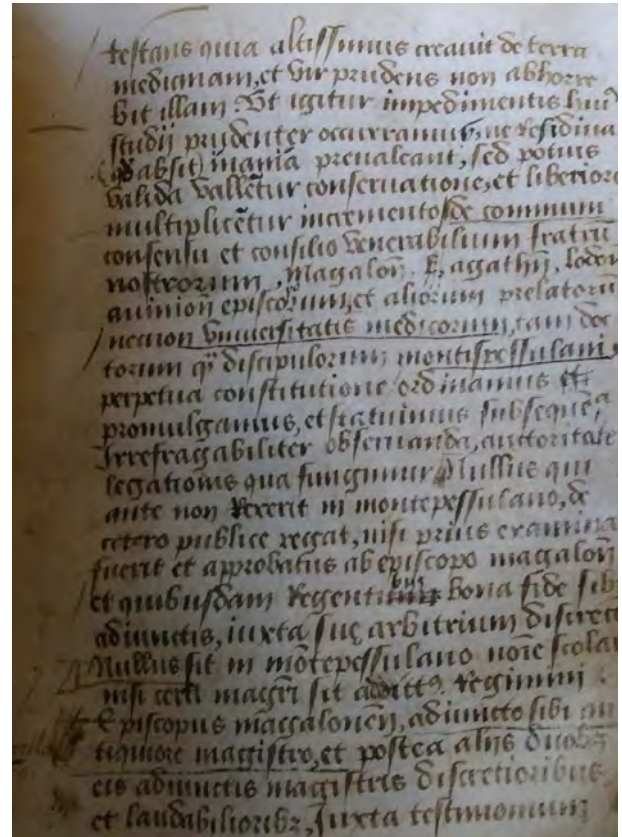 testans quia altissimus creavit de terra
medicinam, et vir prudens non abhorre
bit illam Vt igitur impedimentis huiꝰ
studij prudenter occurramus, ne residina
absit) prevaleant, sed potius
valida vallētur conservatione, et liberiore
multiplicētur incremento, de commum
consensu et consilio venerabilium fratrū
nostrorum, magaloñ. agathñ, lodoñ
avinioñ episcoporum, et aliorum prelatorū
necnon vniversitatis medicorum, tam doc
torum qꝫ discipulorum montispessulani
perpetua constitutione ordinamus et
promulgamus, et statuimus subsequēa
Irrefragabiliter observanda, auctoritate
legationis qua fungimur Nullus qui
ante non rexerit in montepessulano, de
cetero publice regat, nisi prius examina
fuerit et approbatus ab episcopo magaloñ
et quibusdam Regentibus bona fide sib
adiunctis, iuxta suę arbitrium discreti
Nullus sit in mōtepessulano noīe scolar
nisi certi magr̄i sit regimini
Episcopus magalonen̄, adiuncto sibi an
tiquiore magistro, et postea alijs duobꝫ
eis adiunctis magistris discretioribus
et laudabilioribꝫ, Juxta testimonium